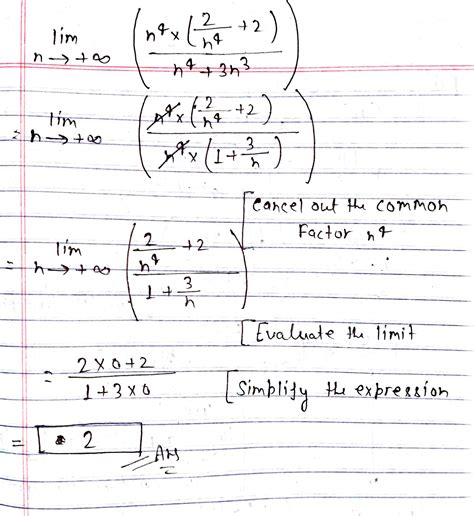 lim n → +∞ ( n⁴ × ( 2/n⁴ + 2 ) / n⁴ + 3n³ )
= lim n → +∞ ( n⁴ × ( 2/n⁴ + 2 ) / n⁴ × ( 1 + 3/n ) )
[Cancel out the common
Factor n⁴
= lim n → +∞ ( 2/n⁴ + 2 / 1 + 3/n )
[Evaluate the limit
= 2 × 0 + 2 / 1 + 3 × 0
[Simplify the expression
= 2
Ans